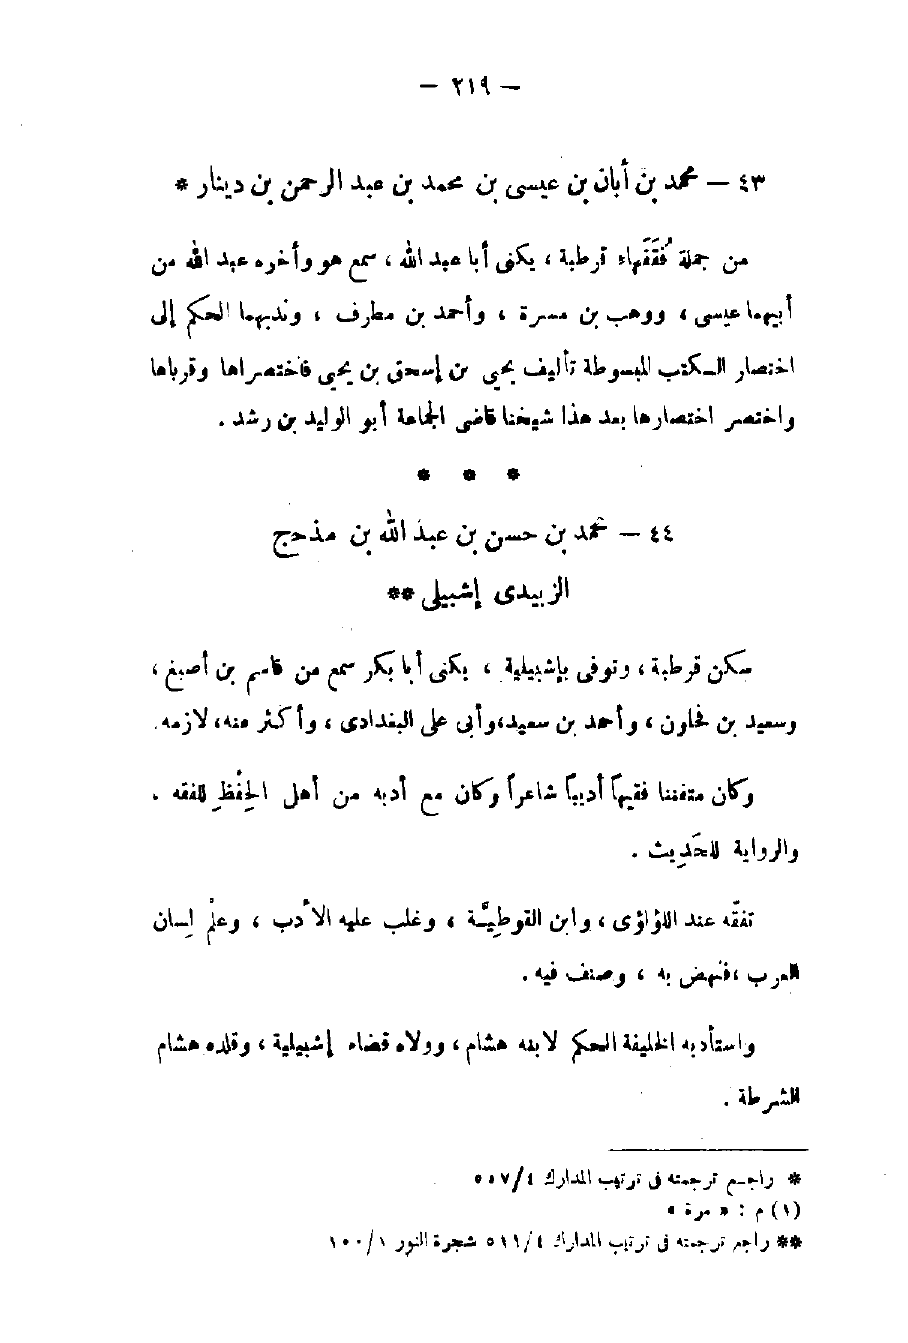 — ٢١٩ —
٤٣ — محمد بن أبان بن عيسى بن محمد بن عبد الرحمن بن دينار *
من جملة فُقَهَاء قرطبة ، يكنى أبا عبد الله ، سمع هو وأخره عبد الله من
أبيهما عيسى ، ووهب بن مسرة ، وأحمد بن مطرف ، وندبهما الحكم إلى
اختصار الكتب المبسوطة تأليف يحيى بن إسحق بن يحيى فاختصراها وقرباها
واختصر اختصارها بعد هذا شيخنا قاضى الجماعة أبو الوليد بن رشد .
* * *
٤٤ — محمد بن حسن بن عبد الله بن مذحج
الزبيدى إشبيلى **
سكن قرطبة ، وتوفى بإشبيلية ، يكنى أبا بكر سمع من قاسم بن أصبغ ،
وسعيد بن فحلون ، وأحمد بن سعيد، وأبى على البغدادى ، وأكثر منه، لازمه.
وكان متفننا فقيهاً أديباً شاعراً وكان مع أدبه من أهل الحِفْظِ للفقه .
والرواية للحَدِيث .
تفقّه عند اللؤلؤى ، وابن القوطِيَّة ، وغلب عليه الأدب ، وعلْم لِسان
العرب ،فنهض به ، وصنف فيه .
واستأدبه الخليفة الحكم لابنه هشام ، وولاه قضاء إشبيلية ، وقلده هشام
الشرطة .
* راجع ترجمته فى ترتيب المدارك ٤/٥٥٧
(١) م : « مرة »
** راجع ترجمته فى ترتيب المدارك ٤/٥١٩ شجرة النور ١/١٠٠